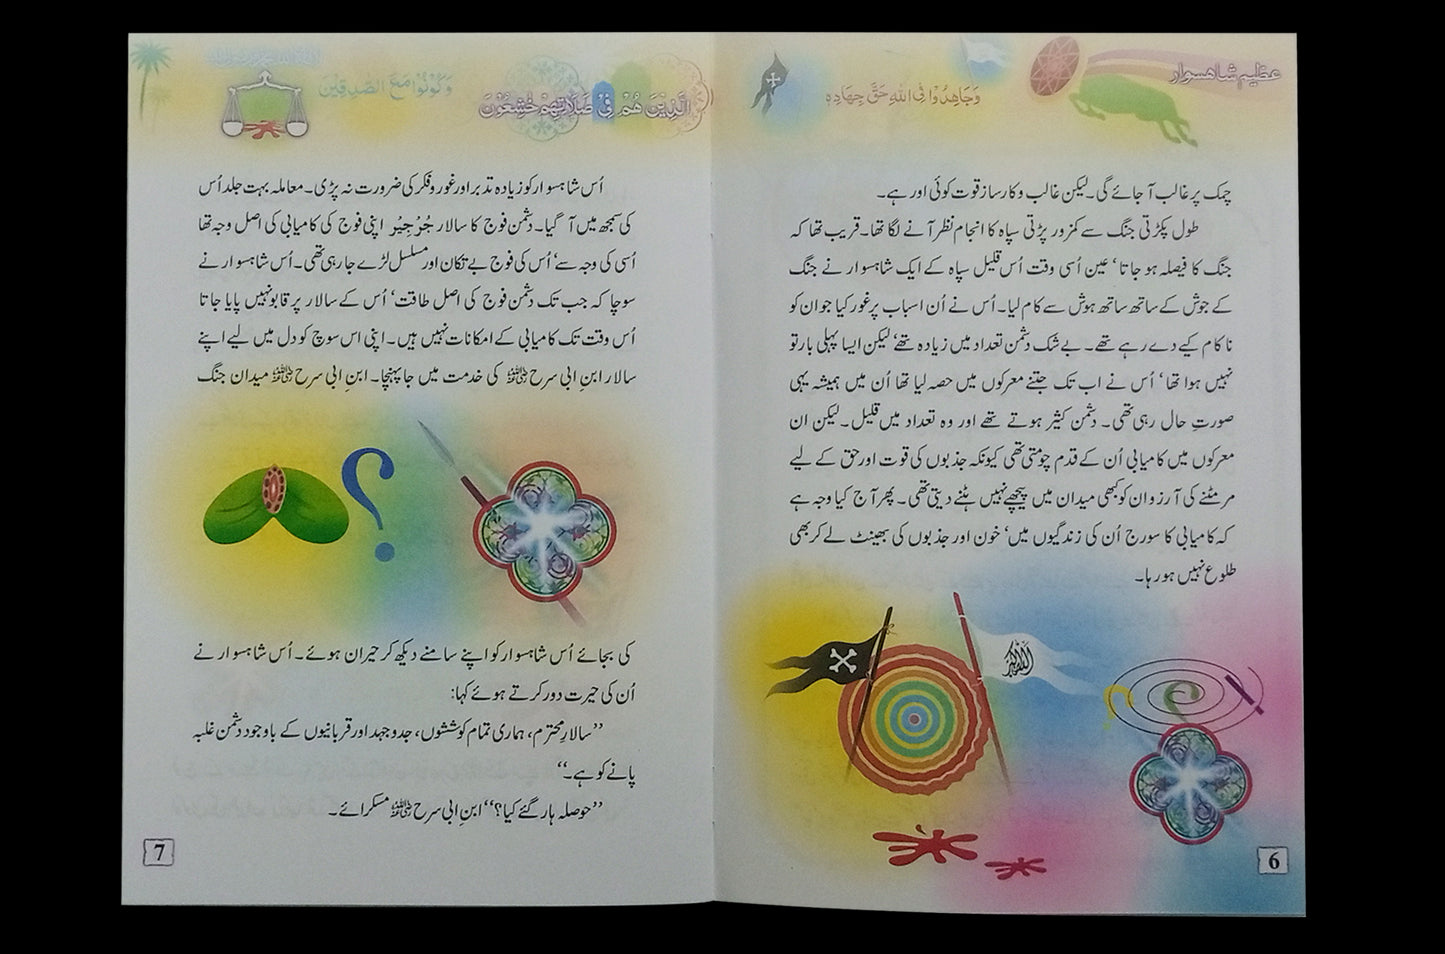 عظیم شاہسوار
وَجَاهِدُوْا فِی اللّٰهِ حَقَّ جِهَادِهٖ
چمک پر غالب آ جائے گی۔ لیکن غالب و کارساز قوت کوئی اور ہے۔
طول پکڑتی جنگ سے کمزور پڑتی سپاہ کا انجام نظر آنے لگا تھا۔ قریب تھا کہ
جنگ کا فیصلہ ہو جاتا‘ عین اُسی وقت اُس قلیل سپاہ کے ایک شاہسوار نے جنگ
کے جوش کے ساتھ ساتھ ہوش سے کام لیا۔ اُس نے اُن اسباب پر غور کیا جو ان کو
ناکام کیے دے رہے تھے۔ بے شک دشمن تعداد میں زیادہ تھے‘ لیکن ایسا پہلی بار تو
نہیں ہوا تھا‘ اُس نے اب تک جتنے معرکوں میں حصہ لیا تھا اُن میں ہمیشہ یہی
صورتِ حال رہی تھی۔ دشمن کثیر ہوتے تھے اور وہ تعداد میں قلیل۔ لیکن ان
معرکوں میں کامیابی اُن کے قدم چومتی تھی کیونکہ جذبوں کی قوت اور حق کے لیے
مر مٹنے کی آرزو ان کو کبھی میدان میں پیچھے نہیں ہٹنے دیتی تھی۔ پھر آج کیا وجہ ہے
کہ کامیابی کا سورج اُن کی زندگیوں میں‘ خون اور جذبوں کی بھینٹ لے کر بھی
طلوع نہیں ہو رہا۔
اللہ اکبر
6
الَّذِیْنَ هُمْ فِیْ صَلَاتِهِمْ خٰشِعُوْنَ
وَكُوْنُوْا مَعَ الصّٰدِقِیْنَ
اُس شاہسوار کو زیادہ تدبر اور غور و فکر کی ضرورت نہ پڑی۔ معاملہ بہت جلد اُس
کی سمجھ میں آ گیا۔ دشمن فوج کا سالار جُرْجِیْر اپنی فوج کی کامیابی کی اصل وجہ تھا
اُسی کی وجہ سے‘ اُس کی فوج بے تکان اور مسلسل لڑے جا رہی تھی۔ اُس شاہسوار نے
سوچا کہ جب تک دشمن فوج کی اصل طاقت‘ اُس کے سالار پر قابو نہیں پایا جاتا
اُس وقت تک کامیابی کے امکانات نہیں ہیں۔ اپنی اس سوچ کو دل میں لیے اپنے
سالار ابنِ ابی سرح رضی اللہ عنہ کی خدمت میں جا پہنچا۔ ابنِ ابی سرح رضی اللہ عنہ میدان جنگ
؟
کی بجائے اُس شاہسوار کو اپنے سامنے دیکھ کر حیران ہوئے۔ اُس شاہسوار نے
اُن کی حیرت دور کرتے ہوئے کہا:
’’سالارِ محترم، ہماری تمام کوششوں، جدوجہد اور قربانیوں کے باوجود دشمن غلبہ
پانے کو ہے۔‘‘
’’حوصلہ ہار گئے کیا؟‘‘ ابنِ ابی سرح رضی اللہ عنہ مسکرائے۔
7